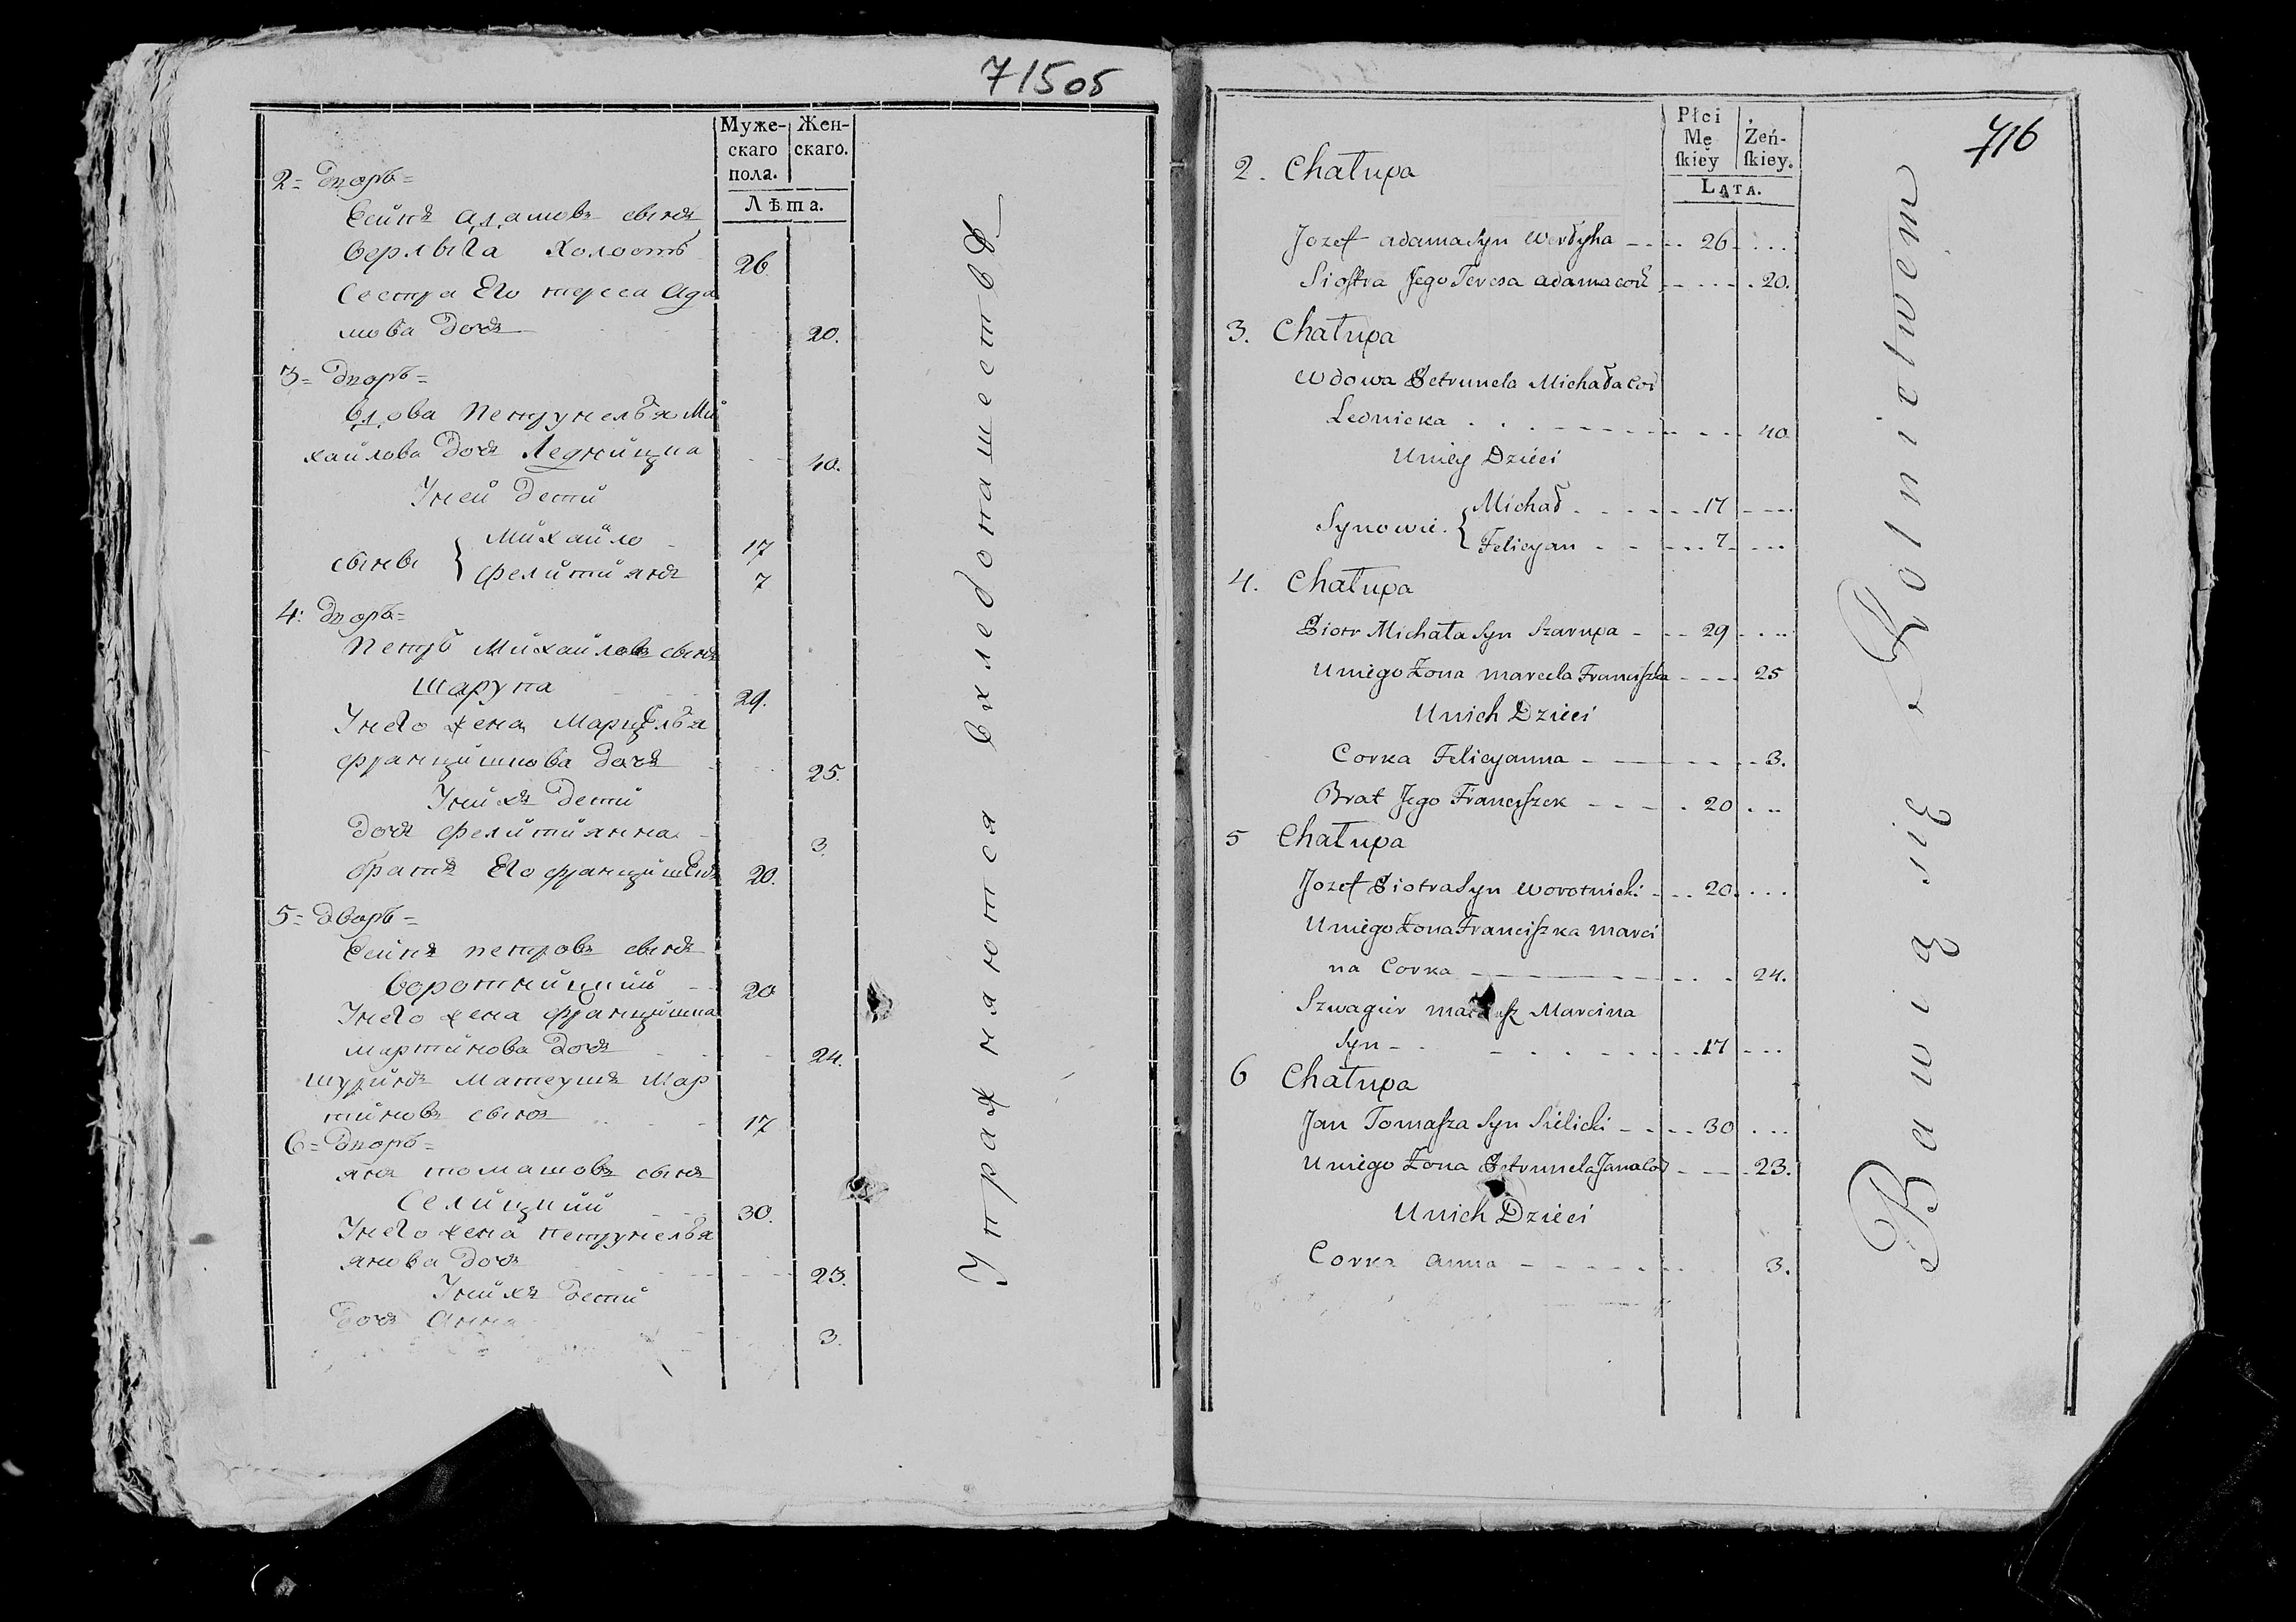 715об
Муже-
скаго
пола.
Жен-
скаго.
Лѣта.
2= дворъ=
Адамовъ сынъ
Верлыга холостъ 26.
Сестра Его тереса Ада
мова дочь 20.
3= дворъ=
вдова Петрунелья Ми
хайлова дочь Ледницка 40.
Уней дети
сынвы { Михайло 17
фелитиянъ 7
4: дворъ=
Петръ Михайловъ сынъ
Шарупа 29.
Унего жена Марцелья
францишкова дочь 25.
Унихъ дети
дочь фелитиянна 3.
братъ Его францишекъ 20.
5= дворъ=
петровъ сынъ
Воротницкий 20
Унего жена францишка
мартинова дочь 24.
шуринъ Матеушъ Мар
тиновъ сынъ 17
6= дворъ=
янъ томашовъ сынъ
Селицкий 30.
Унего жена петрунелья
янова дочь 23.
Унихъ дети
дочь Анна 3.
Упражняются вхлебопашествѣ
716
Płci
Mę
ſkiey
Żeń-
ſkiey.
Lata.
2. Chałupa
Jozef adama Syn Werłyha 26
Siostra Jego Teresa adama cór 20.
3. Chałupa
Wdowa Petrunela Michała Cor
Lednicka 40.
Uniey Dzieci
Synowie. { Michał 17
Felicyan 7
4. Chałupa
Piotr Michała Syn Szarupa 29
Uniego Żona marcela Franciszka 25
Unich Dzieci
Corka Felicyanna 3.
Brat Jego Franciszek 20
5 Chałupa
Jozef Piotra Syn Worotnicki 20.
Uniego Żona Franciszka marci
na Corka 24.
Szwagier Marcina
Syn 17
6 Chałupa
Jan Tomasza Syn Sielicki 30
Uniego Żona Petrunela Jana Cor 23.
Unich Dzieci
Corka anna 3.
Bawią się Rolnictwem